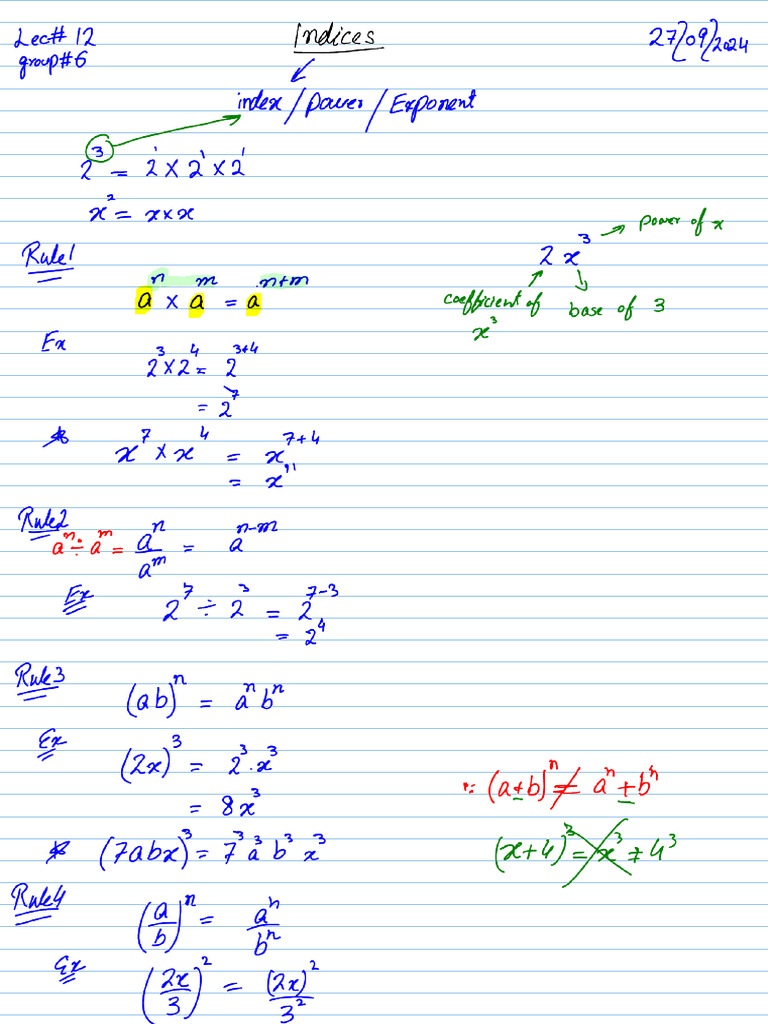 Lec# 12 Indices 27/09/2024
group#6
index/power/Exponent
2³ = 2¹ × 2¹ × 2¹
x² = x × x
Rule1
aⁿ × aᵐ = aⁿ⁺ᵐ
2x³ → power of x
coefficient of x³
base of 3
Ex 2³ × 2⁴ = 2³⁺⁴
= 2⁷
* x⁷ × x⁴ = x⁷⁺⁴
= x¹¹
Rule2
aⁿ ÷ aᵐ = aⁿ/aᵐ = aⁿ⁻ᵐ
Ex 2⁷ ÷ 2³ = 2⁷⁻³
= 2⁴
Rule3
(ab)ⁿ = aⁿbⁿ
Ex (2x)³ = 2³·x³
= 8x³
∵ (a+b)ⁿ ≠ aⁿ+bⁿ
* (7abx)³ = 7³a³b³x³
(x+4)³ = x³+4³
Rule4
(a/b)ⁿ = aⁿ/bⁿ
Ex (2x/3)² = (2x)²/3²